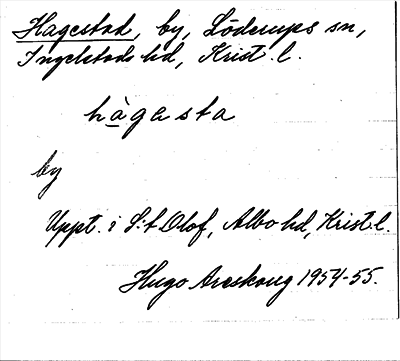 Hagestad, by, Löderups sn,
Ingelstads hd, Krist. l.
hàgasta
by
Uppt. i S:t Olof, Albo hd, Krist. l.
Hugo Areskoug 1954-55.